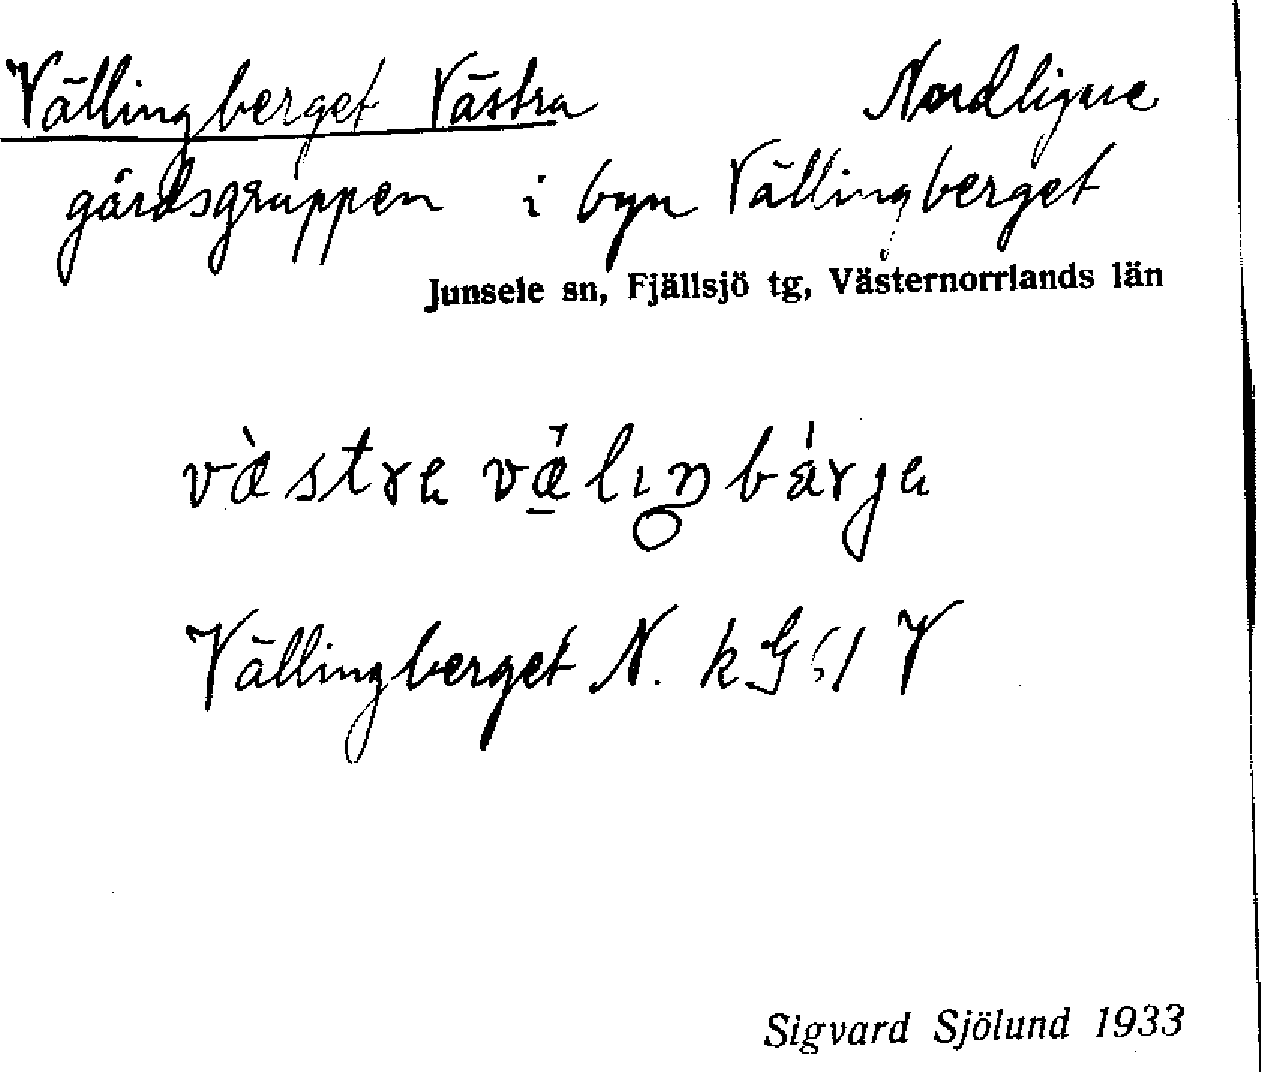 Vällingberget Västra Nordligare
gårdsgruppen i byn Vällingberget
Junsele sn, Fjällsjö tg, Västernorrlands län
Vällingberget N. k
Sigvard Sjölund 1933